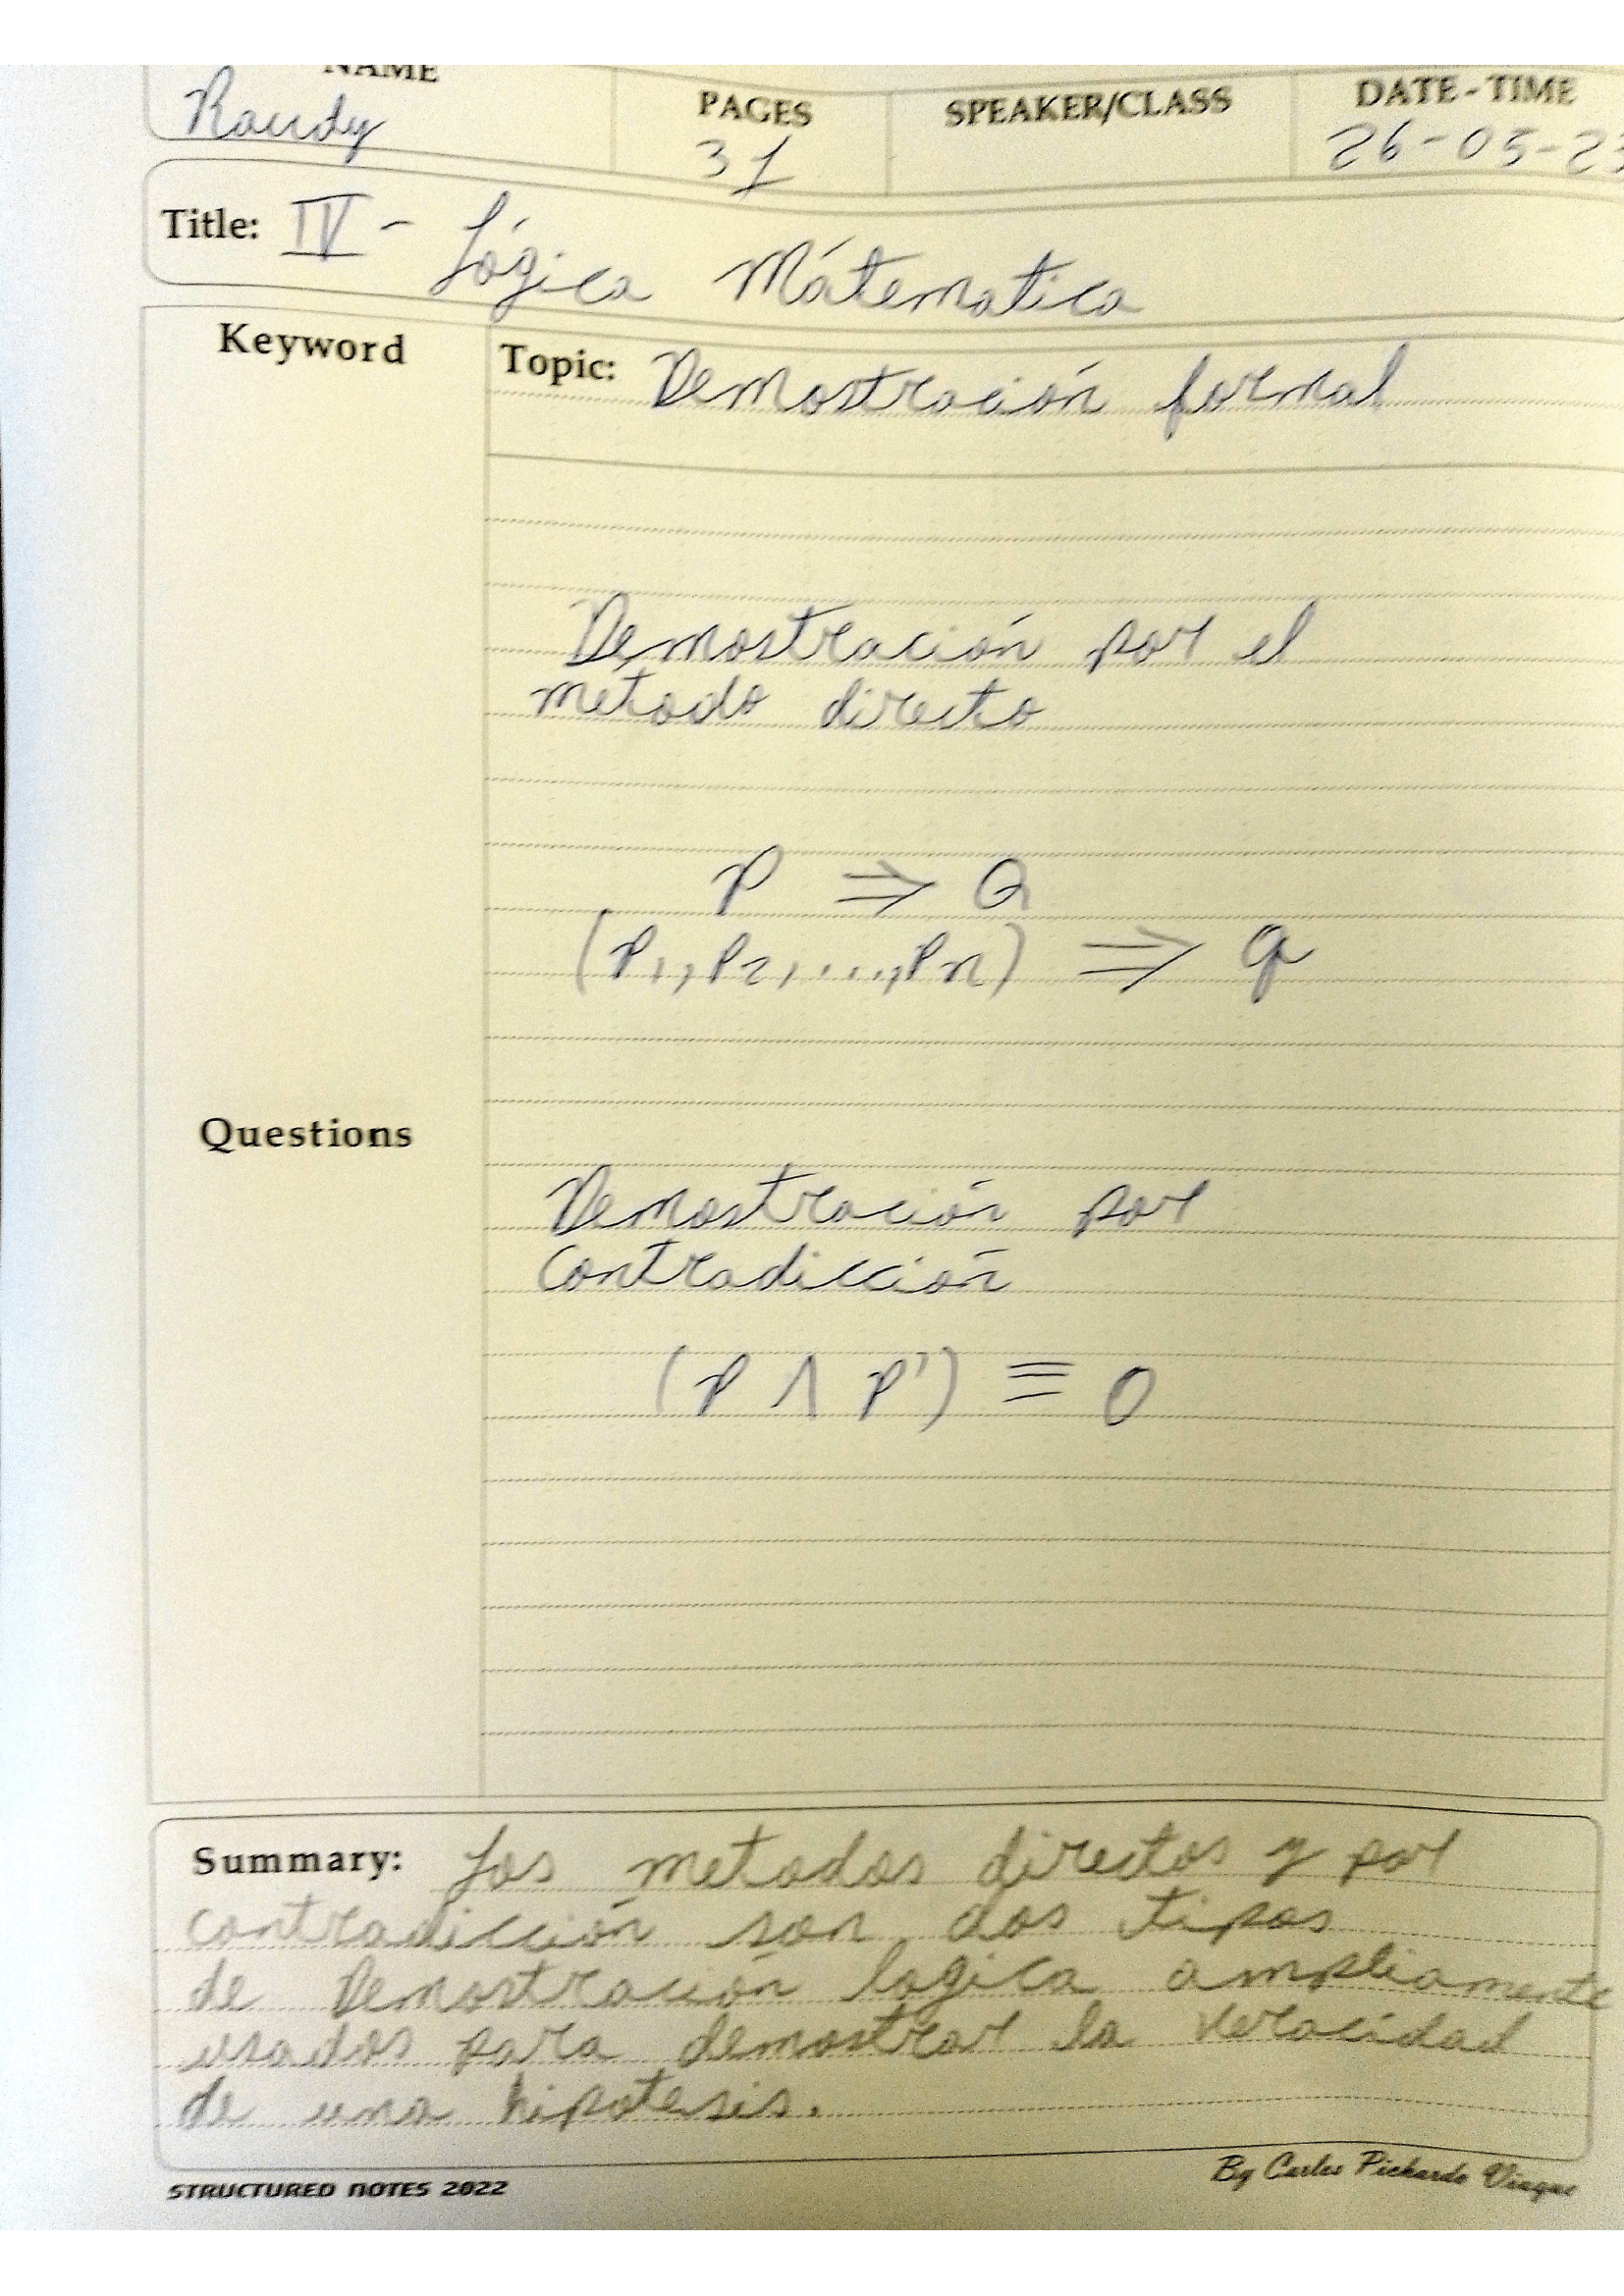 NAME
Raudy
PAGES
31
SPEAKER/CLASS
DATE-TIME
26-05-23
Title: IV - Lógica Mátematica
Keyword
Topic: Demostración formal
Demostración por el
método directo
P ⇒ Q
(P1, P2, ..., Pn) ⇒ q
Questions
Demostración por
Contradicción
(P ∧ P') ≡ 0
Summary: Los metodos directos y por
contradicción son dos tipos
de Demostración logica ampliamente
usados para demostrar la veracidad
de una hipotesis.
STRUCTURED NOTES 2022
By Carlos Pichardo Viuque